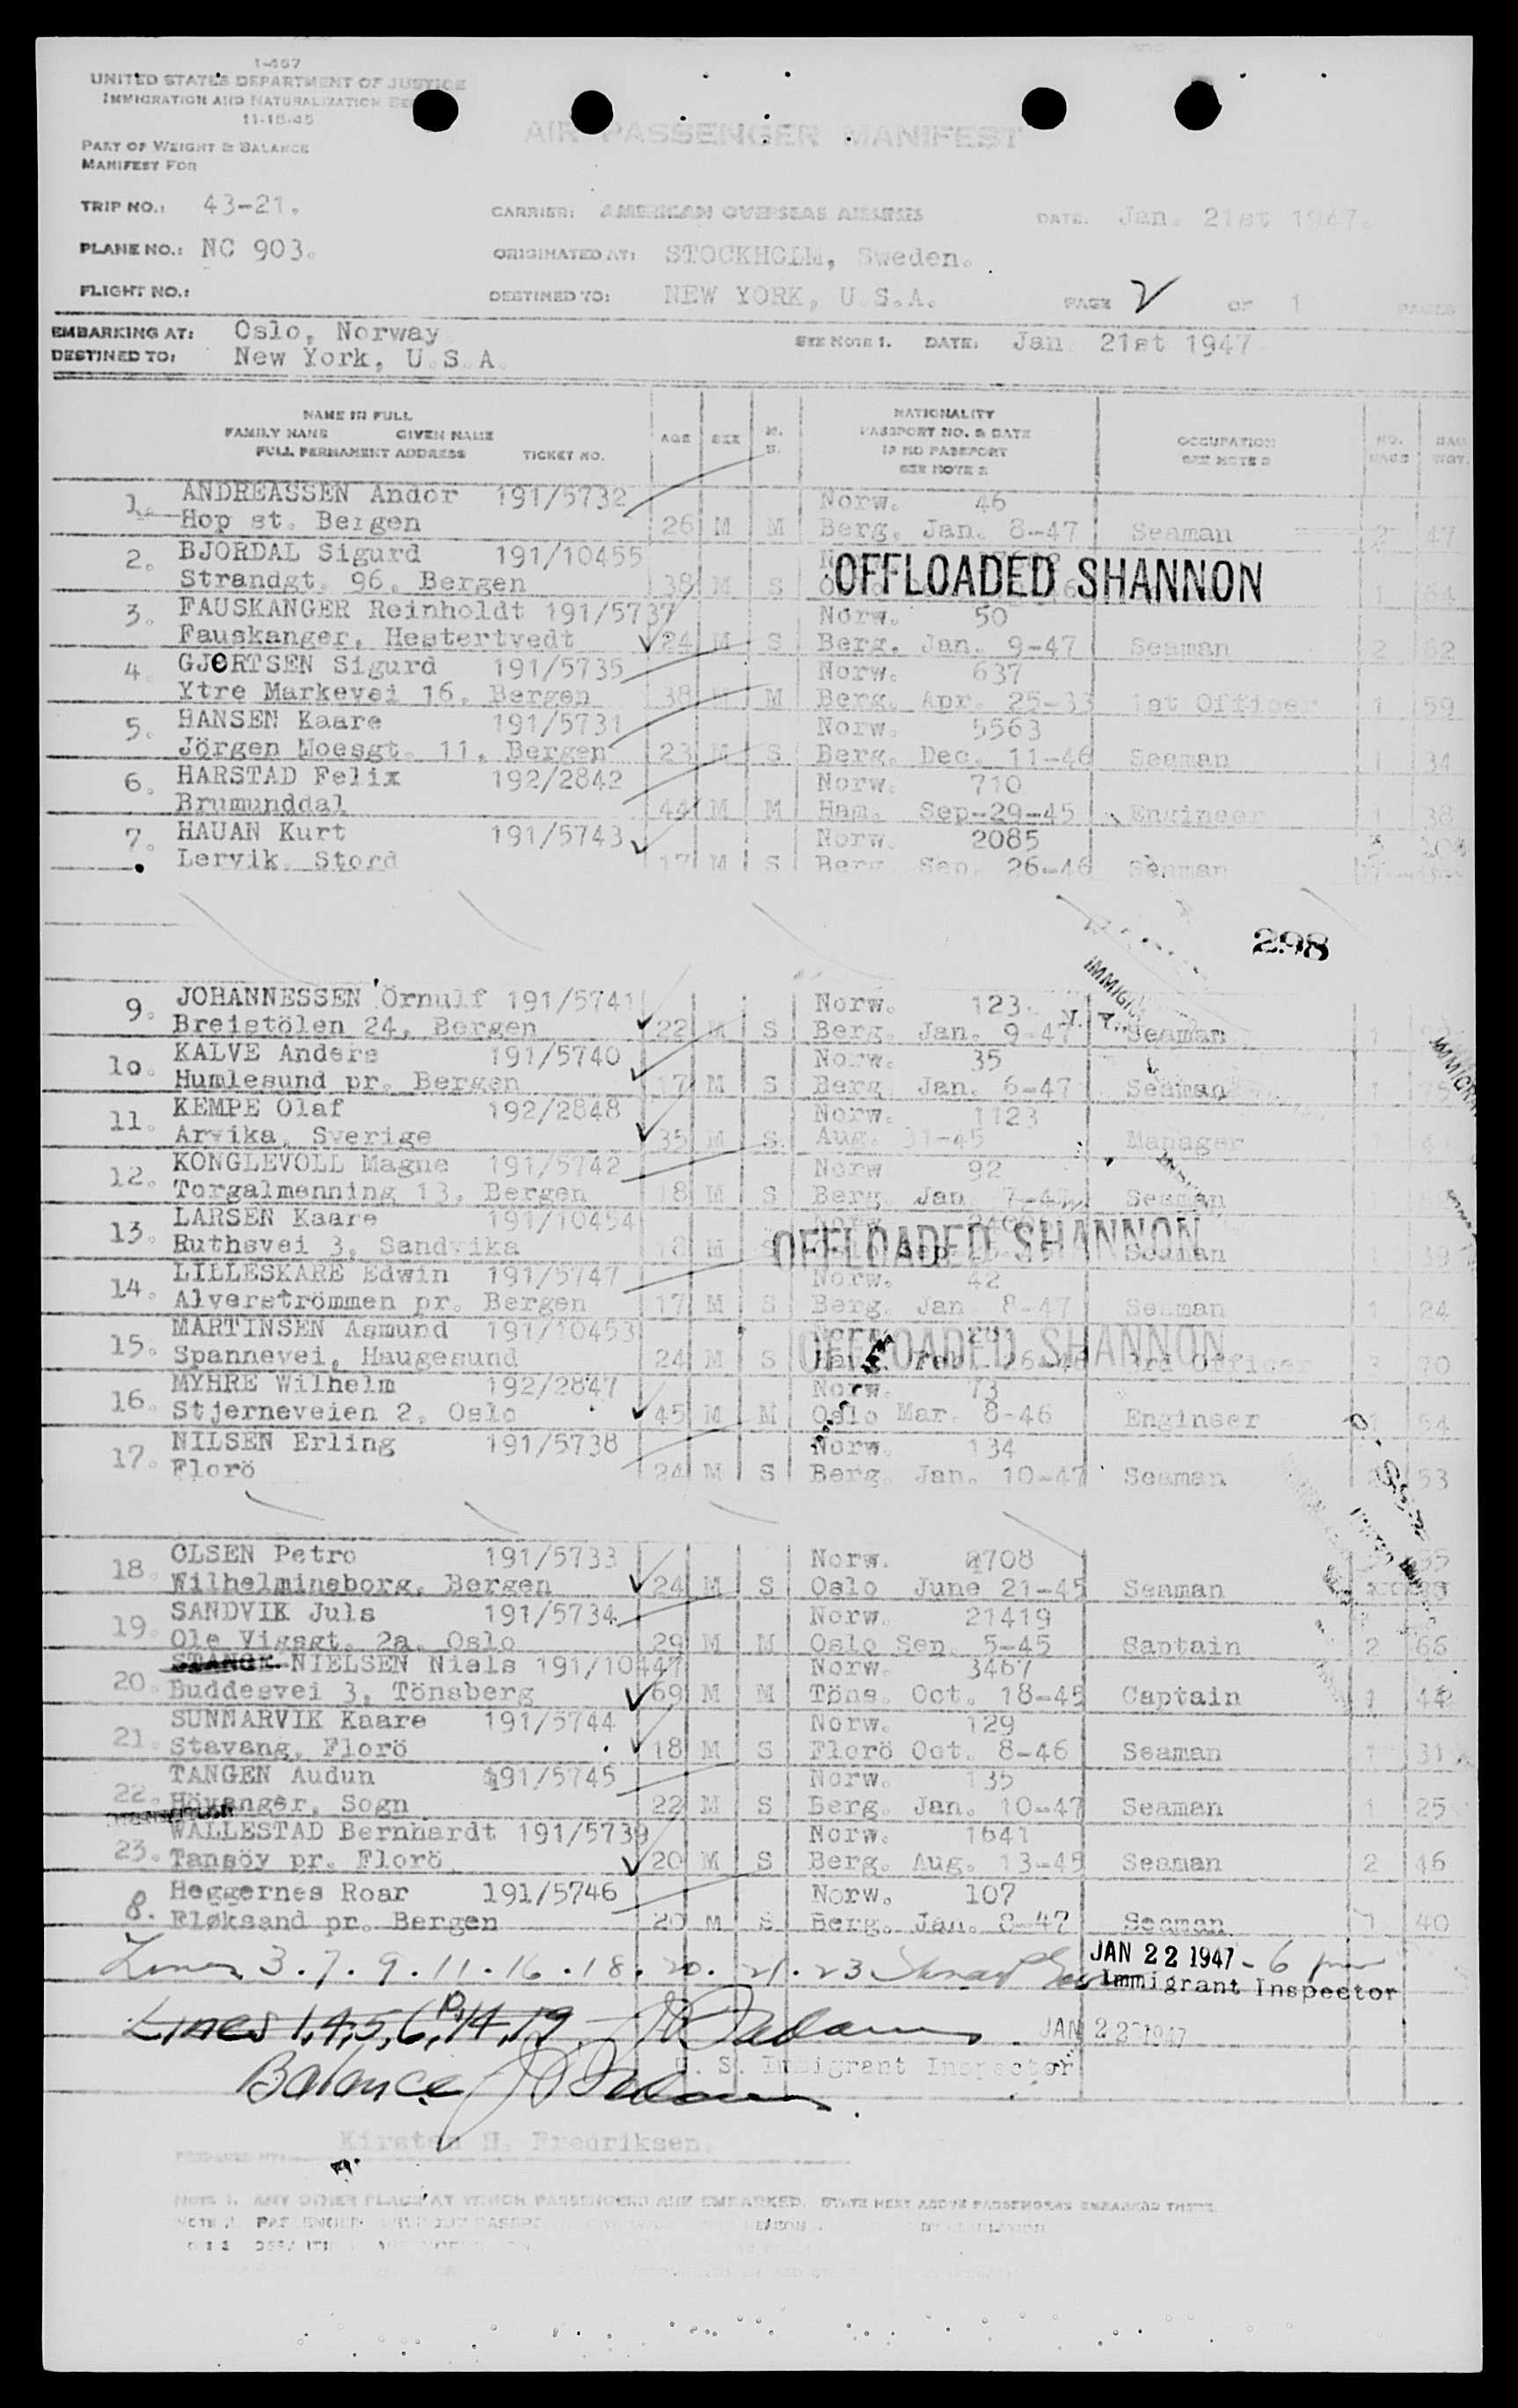 1-467
UNITED STATES DEPARTMENT OF JUSTICE
IMMIGRATION AND NATURALIZATION
11-15-45
AIR PASSENGER MANIFEST
PART OF WEIGHT & BALANCE
MANIFEST FOR
TRIP NO.: 43-21. CARRIER: AMERICAN OVERSEAS AIRLINES DATE: Jan. 21st 1947.
PLANE NO.: NC 903. ORIGINATED AT: STOCKHOLM, Sweden.
FLIGHT NO.: DESTINED TO: NEW YORK, U.S.A. PAGE 2 OF 1 PAGES
EMBARKING AT: Oslo, Norway.
DESTINED TO: New York, U.S.A. SEE NOTE 1. DATE: Jan 21st 1947
NAME IN FULL NATIONALITY
FAMILY NAME GIVEN NAME AGE SEX M. PASSPORT NO. & DATE OCCUPATION NO. BAG
FULL PERMANENT ADDRESS TICKET NO. S. IF NO PASSPORT SEE NOTE BAGS WGT.
SEE NOTE 2
1. ANDREASSEN Andor 191/5732 Norw. 46
Hop st. Bergen 26 M M Berg. Jan. 8-47 Seaman 2 47
2. BJORDAL Sigurd 191/10455
Strandgt. 96. Bergen 38 M S OFFLOADED SHANNON 1
3. FAUSKANGER Reinholdt 191/5737 Norw. 50
Fauskanger, Hestertvedt 24 M S Berg. Jan. 9-47 Seaman 2 62
4. GJERTSEN Sigurd 191/5735 Norw. 637
Ytre Markevei 16, Bergen 38 M M Berg. Apr. 25-33 1st Officer 1 59
5. HANSEN Kaare 191/5731 Norw. 5563
Jörgen Moesgt. 11, Bergen 23 M S Berg. Dec. 11-46 Seaman 1 34
6. HARSTAD Felix 192/2842 Norw. 710
Brumunddal 44 M M Ham. Sep-29-45 Engineer 1 38
7. HAUAN Kurt 191/5743 Norw. 2085
Lervik, Stord 17 M S Berg Sep. 26-46 Seaman
298
9. JOHANNESSEN Örnulf 191/5741 Norw. 123
Breistölen 24, Bergen 22 M S Berg. Jan. 9-47 Seaman 1
10. KALVE Anders 191/5740 Norw. 35
Humlesund pr. Bergen 17 M S Berg Jan. 6-47 Seaman 1
11. KEMPE Olaf 192/2848 Norw. 1123
Arvika, Sverige 35 M S Aug. 31-45 Manager
12. KONGLEVOLL Magne 191/5742 Norw 92
Torgalmenning 13, Bergen 18 M S Berg Jan 7-47 Seaman
13. LARSEN Kaare 191/10454
Ruthsvei 3, Sandvika 18 M S OFFLOADED SHANNON Seaman 1 39
14. LILLESKARE Edwin 191/5747 Norw. 42
Alverströmmen pr. Bergen 17 M S Berg. Jan 8-47 Seaman 1 24
15. MARTINSEN Asmund 191/10453
Spannevei, Haugesund 24 M S OFFLOADED SHANNON 3rd Officer 70
16. MYHRE Wilhelm 192/2847 Norw. 73
Stjerneveien 2, Oslo 45 M M Oslo Mar. 8-46 Engineer 54
17. NILSEN Erling 191/5738 Norw. 134
Florö 24 M S Berg. Jan. 10-47 Seaman 53
18. OLSEN Petro 191/5733 Norw. 4708
Wilhelmineborg, Bergen 24 M S Oslo June 21-45 Seaman
19. SANDVIK Juls 191/5734 Norw. 21419
Ole Vigsgt. 2a. Oslo 29 M M Oslo Sep. 5-45 Saptain 2 66
20. STANGE NIELSEN Niels 191/10447 Norw. 3467
Buddesvei 3, Tönsberg 69 M M Töns. Oct. 18-45 Captain 1 44
21. SUNNARVIK Kaare 191/5744 Norw. 129
Stavang, Florö 18 M S Florö Oct. 8-46 Seaman 1 31
22. TANGEN Audun 191/5745 Norw. 135
Höyanger, Sogn 22 M S Berg. Jan. 10-47 Seaman 1 25
23. WALLESTAD Bernhardt 191/5739 Norw. 1641
Tansöy pr. Florö 20 M S Berg. Aug. 13-45 Seaman 2 46
8. Heggernes Roar 191/5746 Norw. 107
Fløksand pr. Bergen 20 M S Berg. Jan. 8-47 Seaman 1 40
Lines 3. 7. 9. 11. 16. 18. 20. 21. 23 JAN 22 1947 - 6 pm
Immigrant Inspector
Lines 1, 4, 5, 6, 10, 14, 19 JAN 22 1947
U. S. Immigrant Inspector
Balance
Kirsten H. Fredriksen.
PREPARED BY:
NOTE 1. ANY OTHER PLACE AT WHICH PASSENGERS ARE EMBARKED, STATE NEXT ABOVE PASSENGERS EMBARKED THERE.